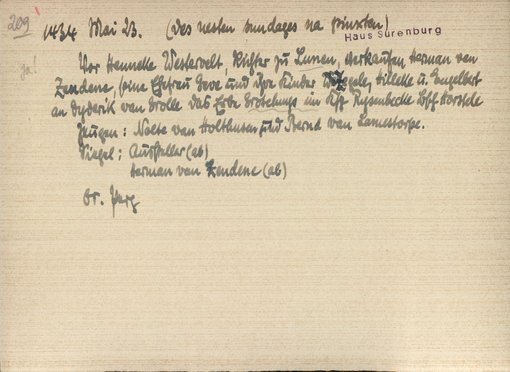 209
1434 Mai 23. (des nesten sundages na pinxten)
Haus Surenburg
ja!
Vor Henneke Westervelt Richter zu Lunen, verkaufen Herman van
Zendene, seine Ehefrau Deve und ihre Kinder Wessele, Hillelle u. Engelbert
an Dyderik van Drolle das Erbe Grotehus im Kss Rysenbecke Bss Horstele
Zeugen: Nolte van Holthusen und Bernd van Lamestorpe.
Siegel: Aussteller (ab)
Herman van Zendene (ab)
Or. Perg